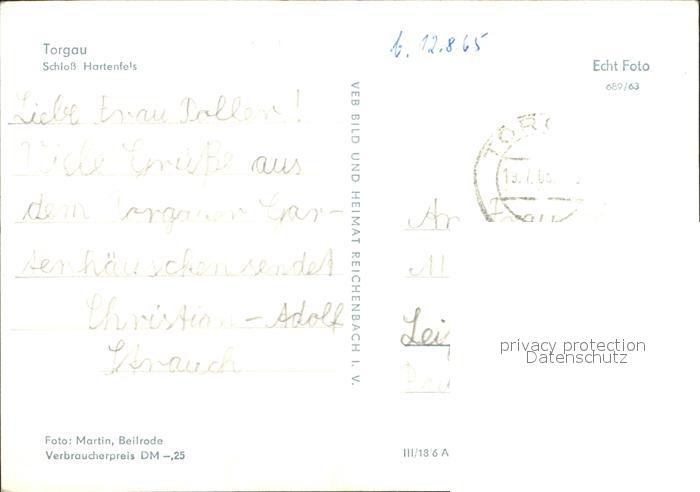 Torgau
Schloß Hartenfels
b. 12.8.65
Echt Foto
689/63
Liebe Frau Doller!
Viele Grüße aus
dem Torgauer Gar-
tenhäuschen sendet
Christian-Adolf
Strauch
VEB BILD UND HEIMAT REICHENBACH I. V.
TORG
19.7.65
An Frau
Leip
privacy protection
Datenschutz
Foto: Martin, Beilrode
Verbraucherpreis DM –,25
III/18/6 A